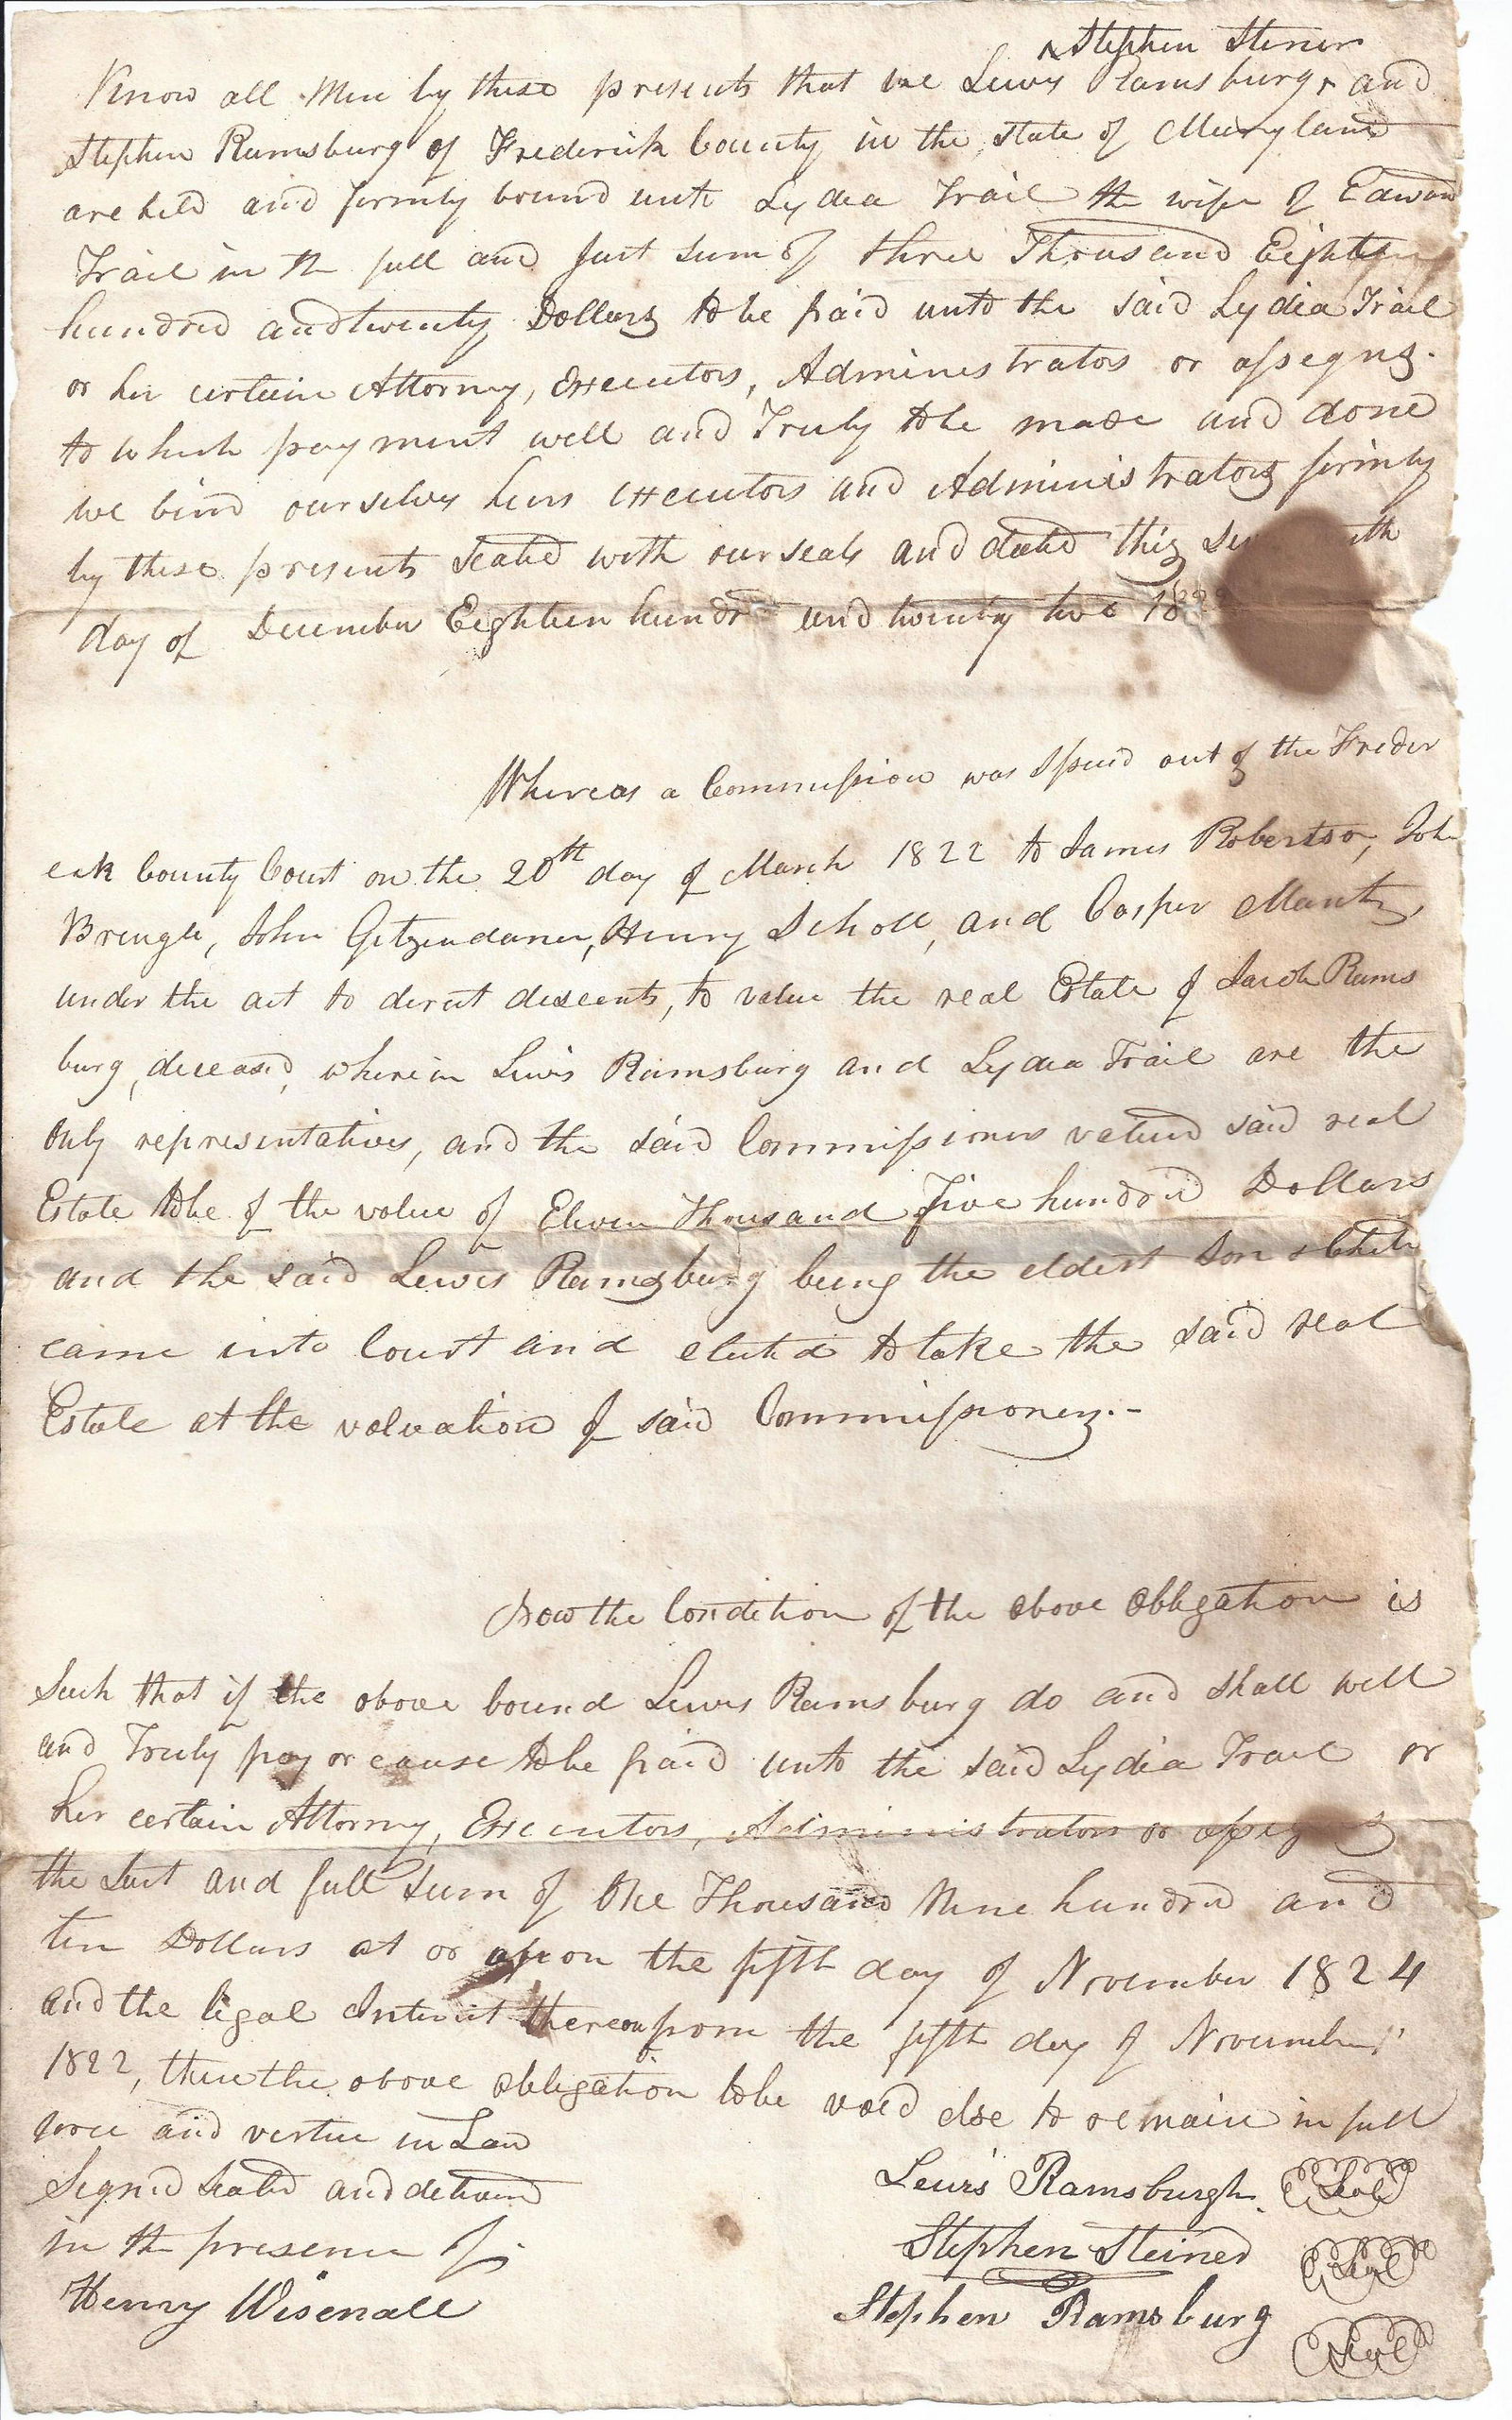 Stephen Steiner
Know all Men by these presents that we Lewis Ramsburg ^ and
Stephen Ramsburg of Frederick County in the State of Maryland
are held and firmly bound unto Lydia Trail the wife of Edward
Trail in the full and just sum of three Thousand Eight
hundred and twenty Dollars to be paid unto the said Lydia Trail
or her certain Attorney, Executors, Administrators or assigns.
to which payment well and Truly to be made and done
we bind ourselves heirs executors and Administrators firmly
by these presents sealed with our seals and dated this
day of December Eighteen hundred and twenty two 182
Whereas a Commission was Issued out of the Freder
ick County Court on the 20th day of March 1822 to James Robertson, John
Brengle, John Getzendaner, Henry Scholl, and Casper Mantz,
under the act to direct descents, to value the real Estate of Jacob Rams
burg, deceased, wherein Lewis Ramsburg and Lydia Trail are the
only representatives, and the said Commissioners valued said real
Estate to be of the value of Eleven Thousand Five hundred Dollars
and the said Lewis Ramsburg being the eldest Son
came into Court and elected to take the said real
Estate at the valuation of said Commissioners.-
Now the Condition of the above Obligation is
Such that if the above bound Lewis Ramsburg do and shall well
and Truly pay or cause to be paid unto the said Lydia Trail or
her certain Attorney, Executors, Administrators or assigns
the Just and full Sum of One Thousand Nine hundred and
ten Dollars at or upon the fifth day of November 1824
and the legal Interest thereon from the fifth day of November
1822, then the above obligation to be void else to remain in full
force and vertue in Law
Signed Sealed and delivered
in the presence of
Henry Wisenall
Lewis Ramsburgh Seal
Stephen Steiner Seal
Stephen Ramsburg Seal